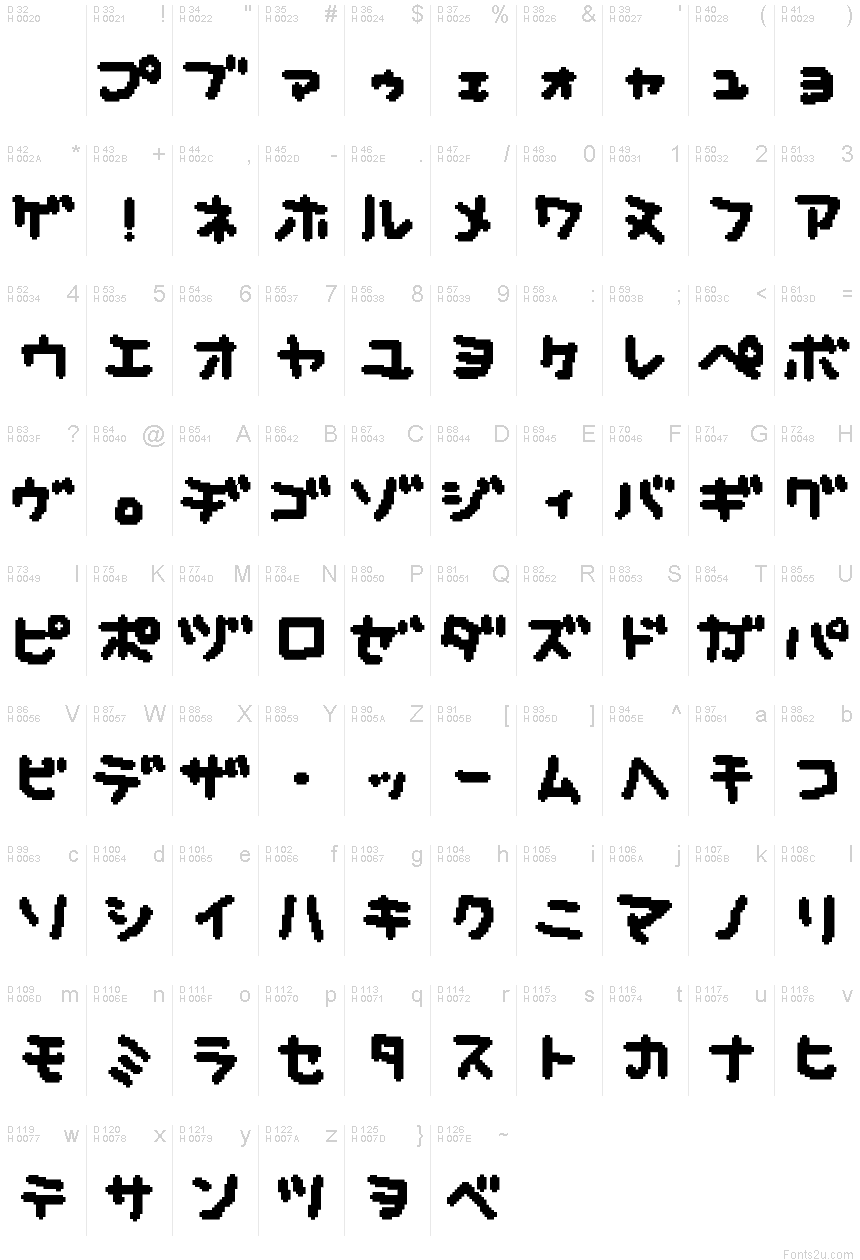 D 32 D 33 ! D 34 " D 35 # D 36 $ D 37 % D 38 & D 39 ' D 40 ( D 41 )
H 0020 H 0021 H 0022 H 0023 H 0024 H 0025 H 0026 H 0027 H 0028 H 0029
プ ブ ァ ゥ ェ ォ ャ ュ ョ
D 42 * D 43 + D 44 , D 45 - D 46 . D 47 / D 48 0 D 49 1 D 50 2 D 51 3
H 002A H 002B H 002C H 002D H 002E H 002F H 0030 H 0031 H 0032 H 0033
ゲ ! ネ ホ ル メ ワ ヌ フ ア
D 52 4 D 53 5 D 54 6 D 55 7 D 56 8 D 57 9 D 58 : D 59 ; D 60 < D 61 =
H 0034 H 0035 H 0036 H 0037 H 0038 H 0039 H 003A H 003B H 003C H 003D
ウ エ オ ヤ ユ ヨ ケ レ ペ ボ
D 63 ? D 64 @ D 65 A D 66 B D 67 C D 68 D D 69 E D 70 F D 71 G D 72 H
H 003F H 0040 H 0041 H 0042 H 0043 H 0044 H 0045 H 0046 H 0047 H 0048
ヴ 。 ヂ ゴ ゾ ジ ィ バ ギ グ
D 73 I D 75 K D 77 M D 78 N D 80 P D 81 Q D 82 R D 83 S D 84 T D 85 U
H 0049 H 004B H 004D H 004E H 0050 H 0051 H 0052 H 0053 H 0054 H 0055
ピ ポ ヅ ロ ゼ ダ ズ ド ガ パ
D 86 V D 87 W D 88 X D 89 Y D 90 Z D 91 [ D 93 ] D 94 ^ D 97 a D 98 b
H 0056 H 0057 H 0058 H 0059 H 005A H 005B H 005D H 005E H 0061 H 0062
ビ デ ザ ・ ッ ー ム ヘ チ コ
D 99 c D 100 d D 101 e D 102 f D 103 g D 104 h D 105 i D 106 j D 107 k D 108 l
H 0063 H 0064 H 0065 H 0066 H 0067 H 0068 H 0069 H 006A H 006B H 006C
ソ シ イ ハ キ ク ニ マ ノ リ
D 109 m D 110 n D 111 o D 112 p D 113 q D 114 r D 115 s D 116 t D 117 u D 118 v
H 006D H 006E H 006F H 0070 H 0071 H 0072 H 0073 H 0074 H 0075 H 0076
モ ミ ラ セ タ ス ト カ ナ ヒ
D 119 w D 120 x D 121 y D 122 z D 125 } D 126 ~
H 0077 H 0078 H 0079 H 007A H 007D H 007E
テ サ ン ツ ヨ ベ
Fonts2u.com